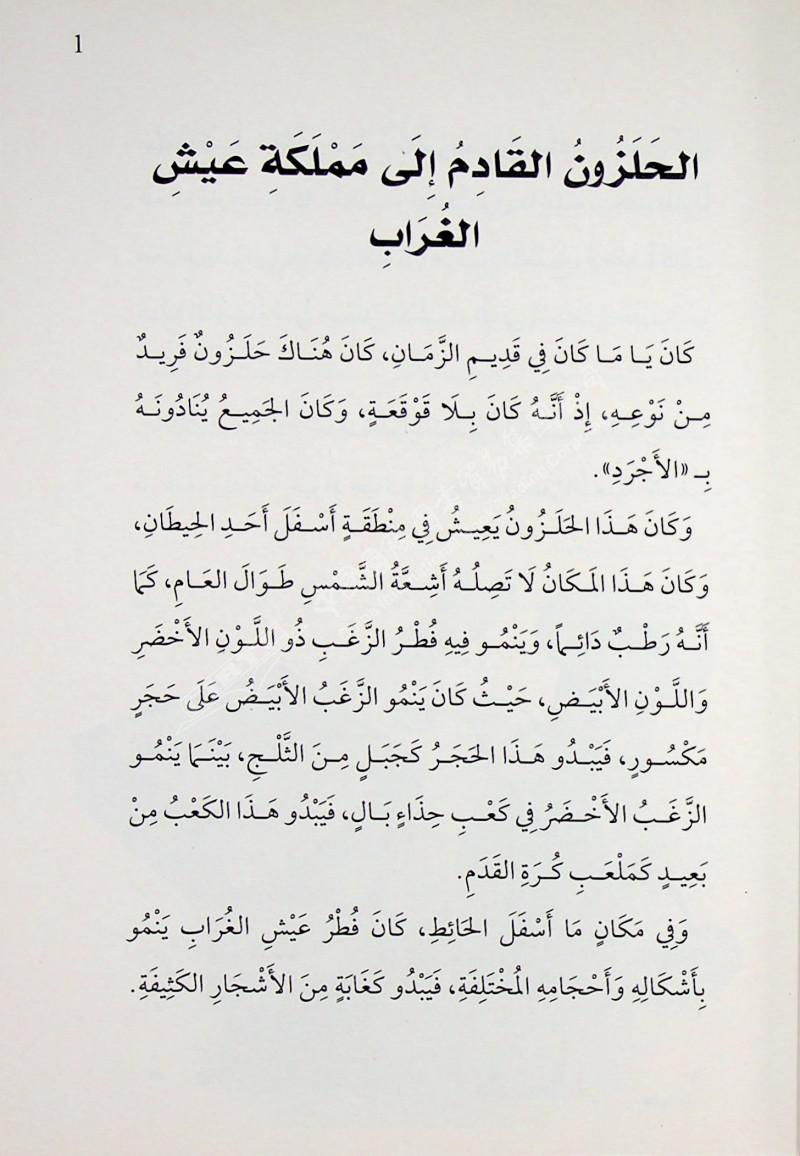 1
الحَلَزُونُ القَادِمُ إِلَى مَمْلَكَةِ عَيْشِ
الغُرَابِ
كَانَ يَا مَا كَانَ فِي قَدِيمِ الزَّمَانِ، كَانَ هُنَاكَ حَلَزُونٌ فَرِيدٌ
مِنْ نَوْعِهِ، إِذْ أَنَّهُ كَانَ بِلَا قَوْقَعَةٍ، وَكَانَ الجَمِيعُ يُنَادُونَهُ
بِـ «الأَجْرَدِ».
وَكَانَ هَذَا الحَلَزُونُ يَعِيشُ فِي مِنْطَقَةٍ أَسْفَلَ أَحَدِ الحِيطَانِ،
وَكَانَ هَذَا المَكَانُ لَا تَصِلُهُ أَشِعَّةُ الشَّمْسِ طَوَالَ العَامِ، كَمَا
أَنَّهُ رَطْبٌ دَائِماً، وَيَنْمُو فِيهِ فُطْرُ الزَّغَبِ ذُو اللَّوْنِ الأَخْضَرِ
وَاللَّوْنِ الأَبْيَضِ، حَيْثُ كَانَ يَنْمُو الزَّغَبُ الأَبْيَضُ عَلَى حَجَرٍ
مَكْسُورٍ، فَيَبْدُو هَذَا الحَجَرُ كَجَبَلٍ مِنَ الثَّلْجِ، بَيْنَمَا يَنْمُو
الزَّغَبُ الأَخْضَرُ فِي كَعْبِ حِذَاءٍ بَالٍ، فَيَبْدُو هَذَا الكَعْبُ مِنْ
بَعِيدٍ كَمَلْعَبِ كُرَةِ القَدَمِ.
وَفِي مَكَانٍ مَا أَسْفَلَ الحَائِطِ، كَانَ فُطْرُ عَيْشِ الغُرَابِ يَنْمُو
بِأَشْكَالِهِ وَأَحْجَامِهِ المُخْتَلِفَةِ، فَيَبْدُو كَغَابَةٍ مِنَ الأَشْجَارِ الكَثِيفَةِ.